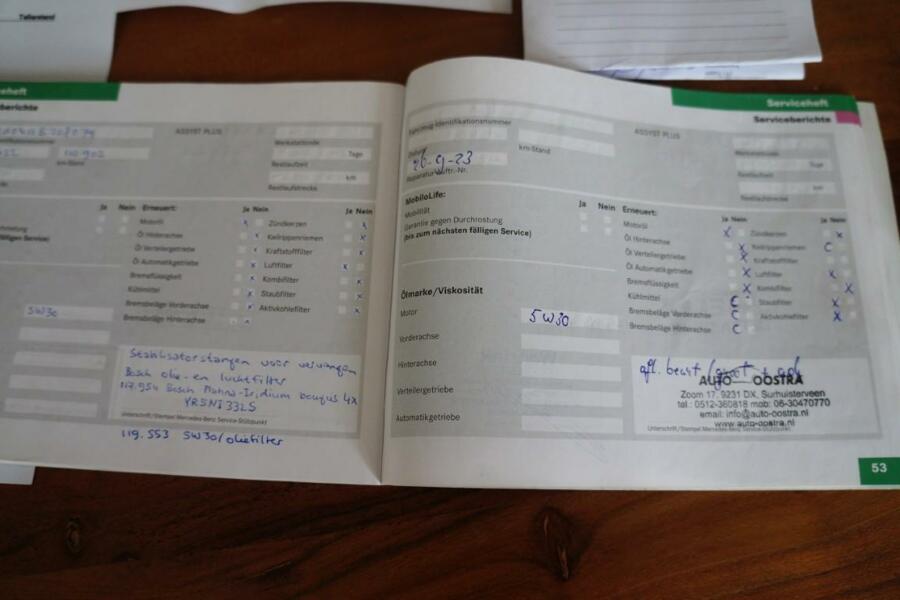 Tellerstand
Serviceheft
Serviceberichte
ASSYST PLUS
Werkstattcode
Tage
Restlaufzeit
km
Restlaufstrecke
km-Stand
Ja Nein Erneuert: Ja Nein Ja Nein
Motoröl
Zündkerzen
Öl Hinterachse
Keilrippenriemen
Öl Verteilergetriebe
Kraftstofffilter
Öl Automatikgetriebe
Luftfilter
Bremsflüssigkeit
Kombifilter
Kühlmittel
Staubfilter
Bremsbeläge Vorderachse
Aktivkohlefilter
Bremsbeläge Hinterachse
5W30
Stabilisatorstangen voor vervangen
Bosch olie-en luchtfilter
117.954 Bosch Platina-Iridium bougies 4x
YR5NI332S
Unterschrift/Stempel Mercedes-Benz Service-Stützpunkt
119.553 5W30/oliefilter
Serviceheft
Serviceberichte
Fahrzeug-Identifikationsnummer
ASSYST PLUS
Datum
km-Stand
26-9-23
Reparatur-Auftr.-Nr.
Werkstattcode
Tage
Restlaufzeit
km
Restlaufstrecke
MobiloLife:
Ja Nein
Mobilität
Garantie gegen Durchrostung
(bis zum nächsten fälligen Service)
Erneuert: Ja Nein Ja Nein
Motoröl
Zündkerzen
Öl Hinterachse
Keilrippenriemen
Öl Verteilergetriebe
Kraftstofffilter
Öl Automatikgetriebe
Luftfilter
Bremsflüssigkeit
Kombifilter
Kühlmittel
Staubfilter
Bremsbeläge Vorderachse
Aktivkohlefilter
Bremsbeläge Hinterachse
Ölmarke/Viskosität
Motor
5W30
Vorderachse
Hinterachse
Verteilergetriebe
Automatikgetriebe
gfl. beurt
AUTO OOSTRA
Zoom 17, 9231 DX, Surhuisterveen
tel.: 0512-360818 mob: 06-30470770
email: info@auto-oostra.nl
www.auto-oostra.nl
Unterschrift/Stempel Mercedes-Benz Service-Stützpunkt
53